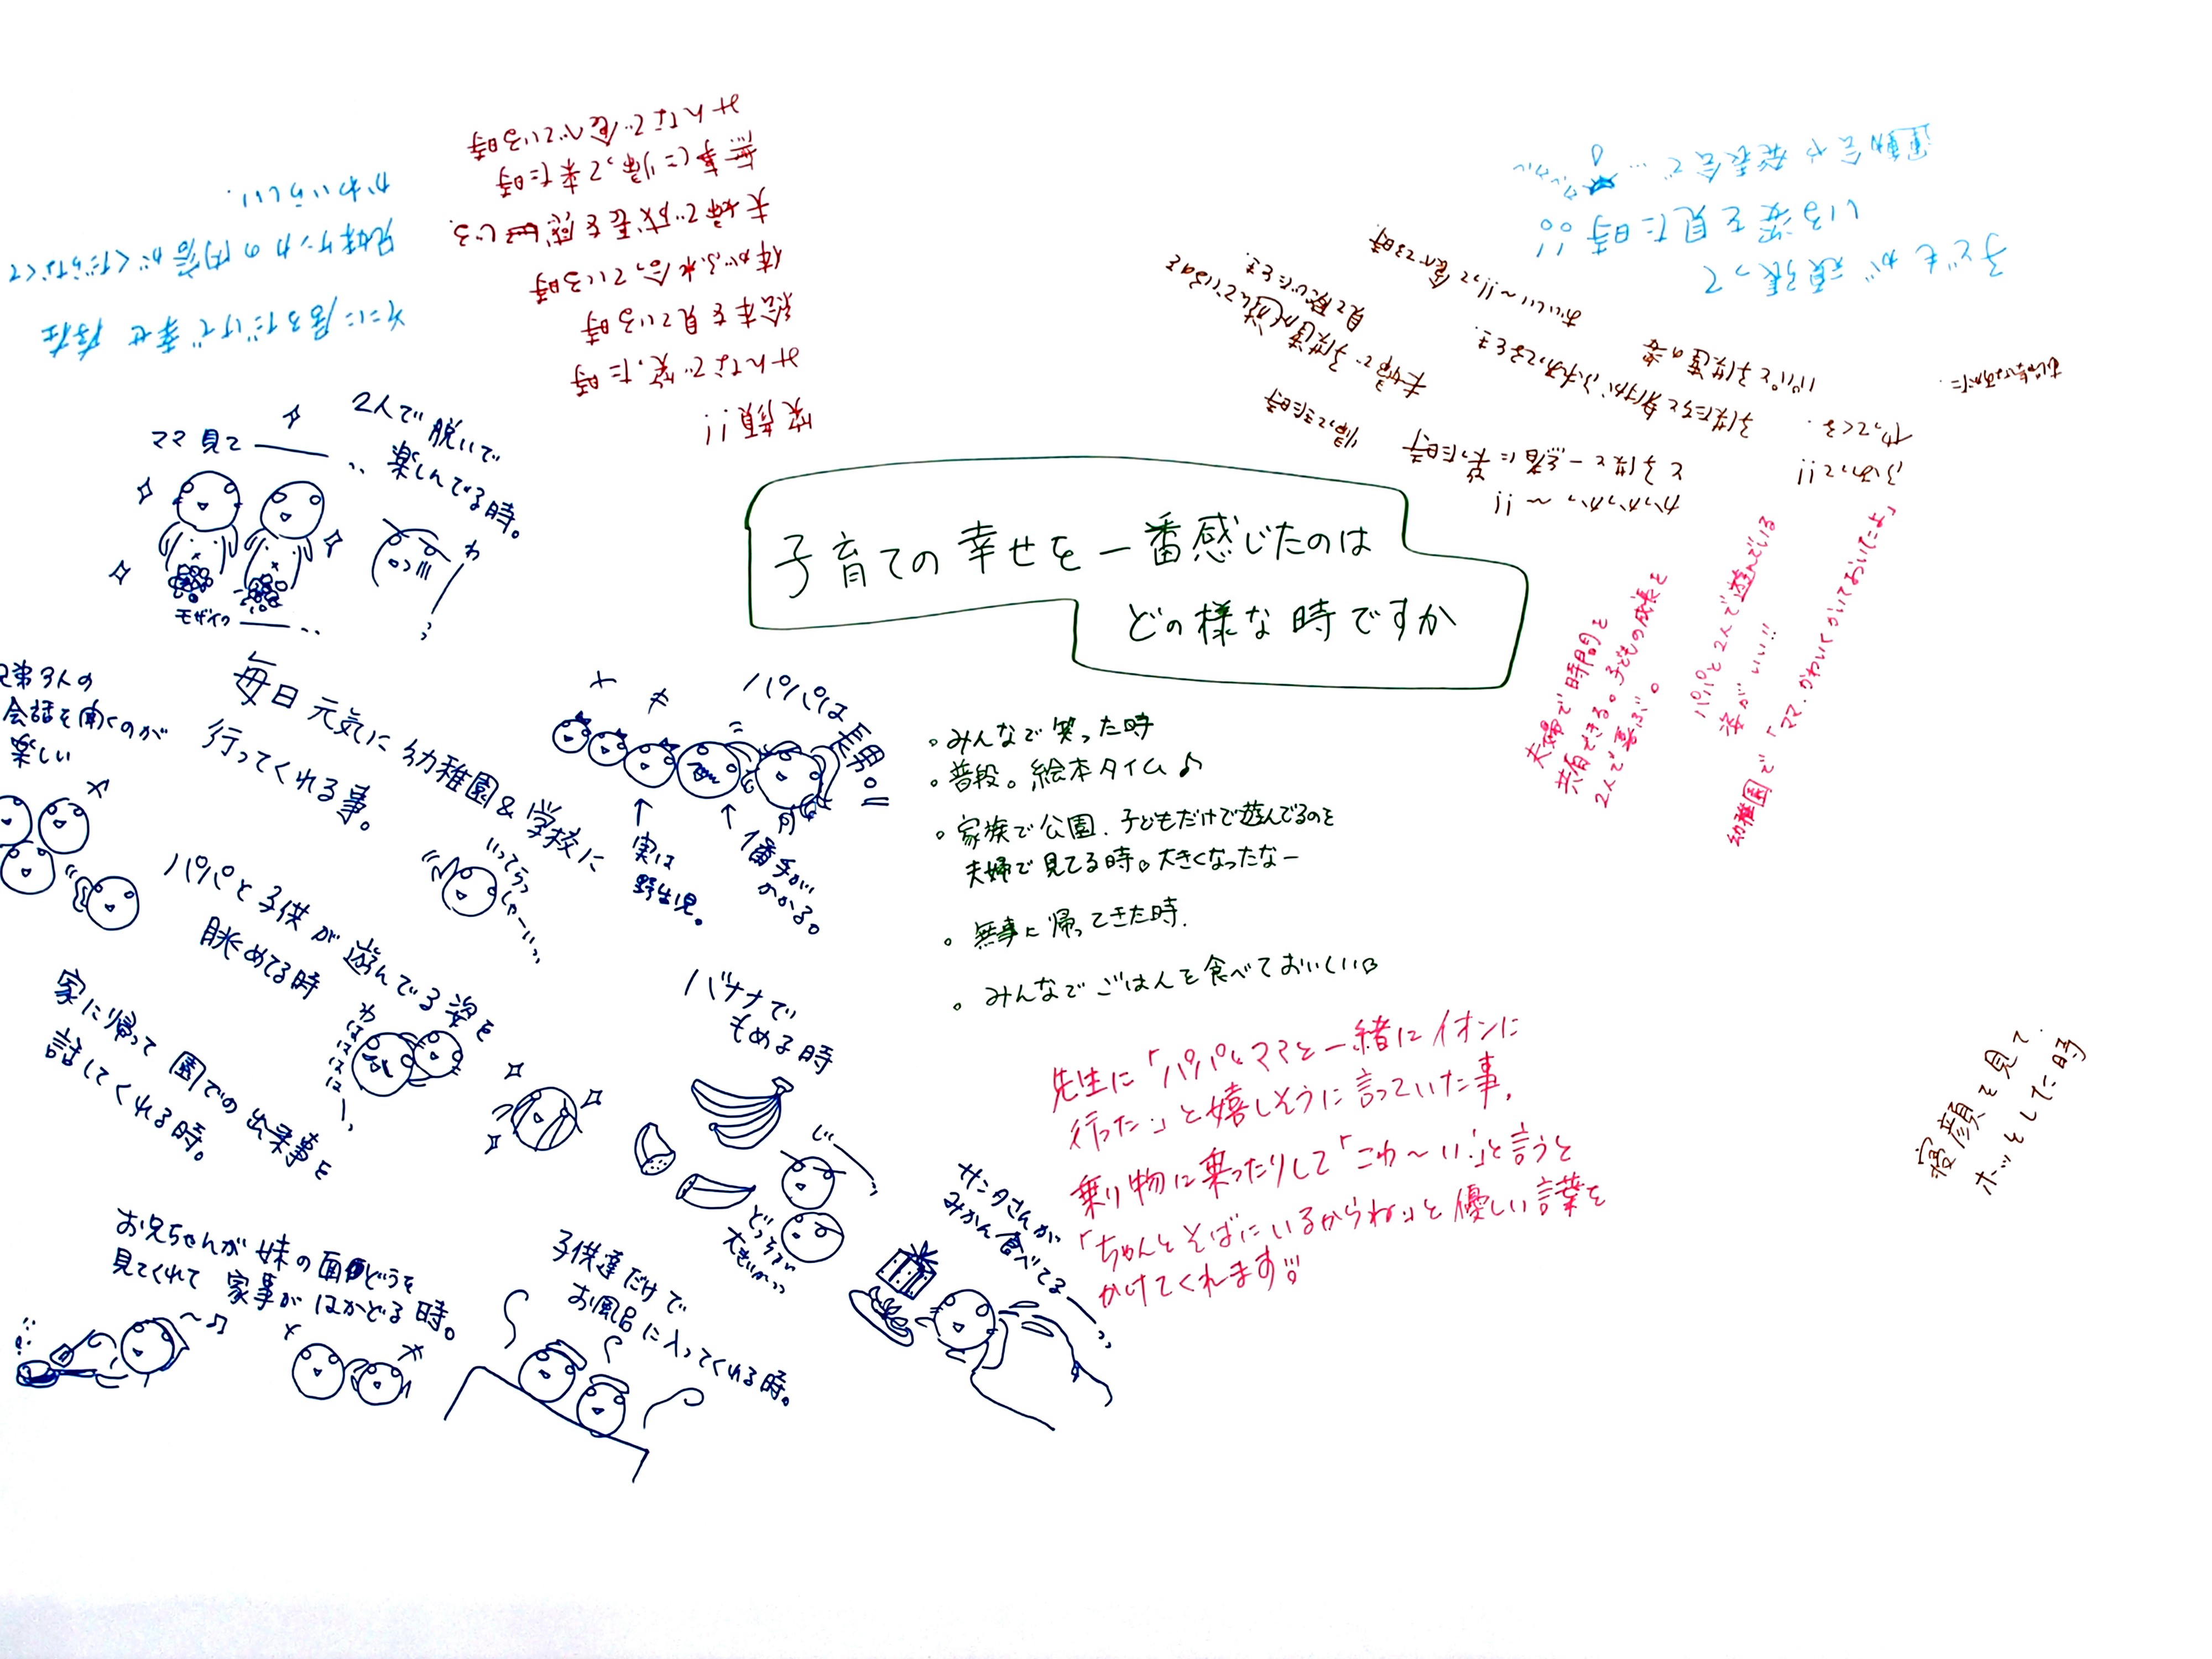 子育ての幸せを一番感じたのは
どの様な時ですか
。みんなで笑った時
。普段。絵本タイム♪
。家族で公園、子どもだけで遊んでるのを
夫婦で見てる時。大きくなったなー
。無事に帰ってきた時.
。みんなでごはんを食べておいしい
先生に「パパとママと一緒にイオンに
行った」と嬉しそうに言っていた事.
乗り物に乗ったりして「こわ〜い」と言うと
「ちゃんとそばにいるからね」と優しい言葉を
かけてくれます!!
寝顔を見て.
ホッとした時
夫婦で時間を
共有できる。子どもの成長を
2人で喜ぶ。
パパと2人で遊んでいる
姿がいい!!
幼稚園で「ママ、かわいくかいておいてたよ」
子どもが頑張って
いる姿を見た時!!
運動会や発表会で…
笑顔!!
みんなで笑った時
絵本を見ている時
体がふれ合っている時
夫婦で成長を感じる.
無事に帰って来た時
みんなで食べている時
そこに居るだけで幸せ 存在
兄妹ケンカの内容がくだらなくて
かわいらしい.
と子供と一緒に笑った時
帰ってきた時
夫婦で子供達が遊んでいるのを
見て聴いたとき.
子供たちと身体がふれあってるとき.
パパと子供達の姿
おいしい〜!!って食べてる時.
やってくる.
2人で脱いで
楽しんでる時。
ママ見てー
モザイクー
毎日元気に幼稚園&学校に
行ってくれる事。
いってらっしゃーいっ
兄弟3人の
会話を聞くのが
楽しい
パパは長男。!!
実は
野生児。
1番手が
かかる。
パパと子供が遊んでる姿を
眺めてる時
わはははは〜
家に帰って園での出来事を
話してくれる時。
バナナで
もめる時
じーっ
どっちが
大きいかっ
お兄ちゃんが妹の面どうを
見てくれて家事がはかどる時。
〜♫
子供達だけで
お風呂に入ってくれる時。
サンタさんが
みかん食べてるーっ